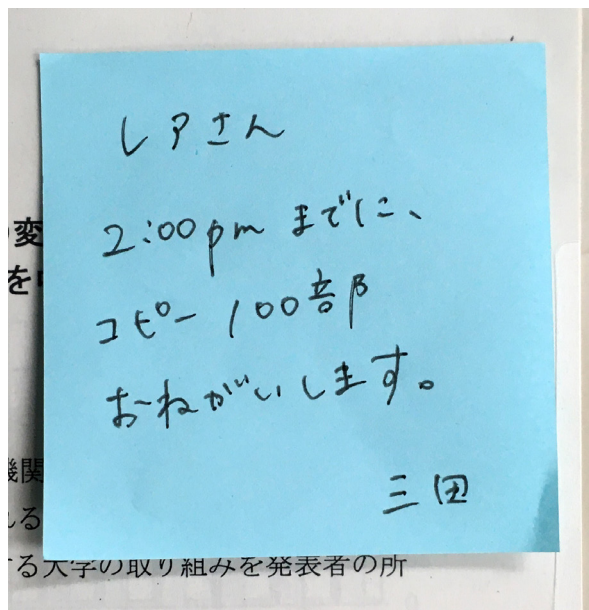 レアさん
2:00pm までに、
コピー 100部
おねがいします。
三田
変
を
機関
れる
する大学の取り組みを発表者の所